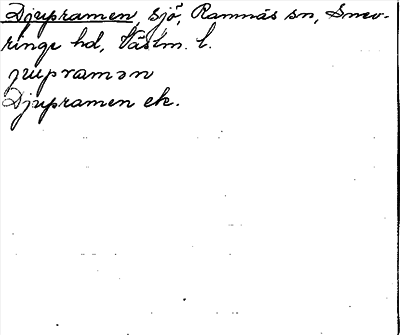 Djupramen, sjö, Ramnäs sn, Snev-
ringe hd, Västm. l.
jupramən
Djupramen ek.